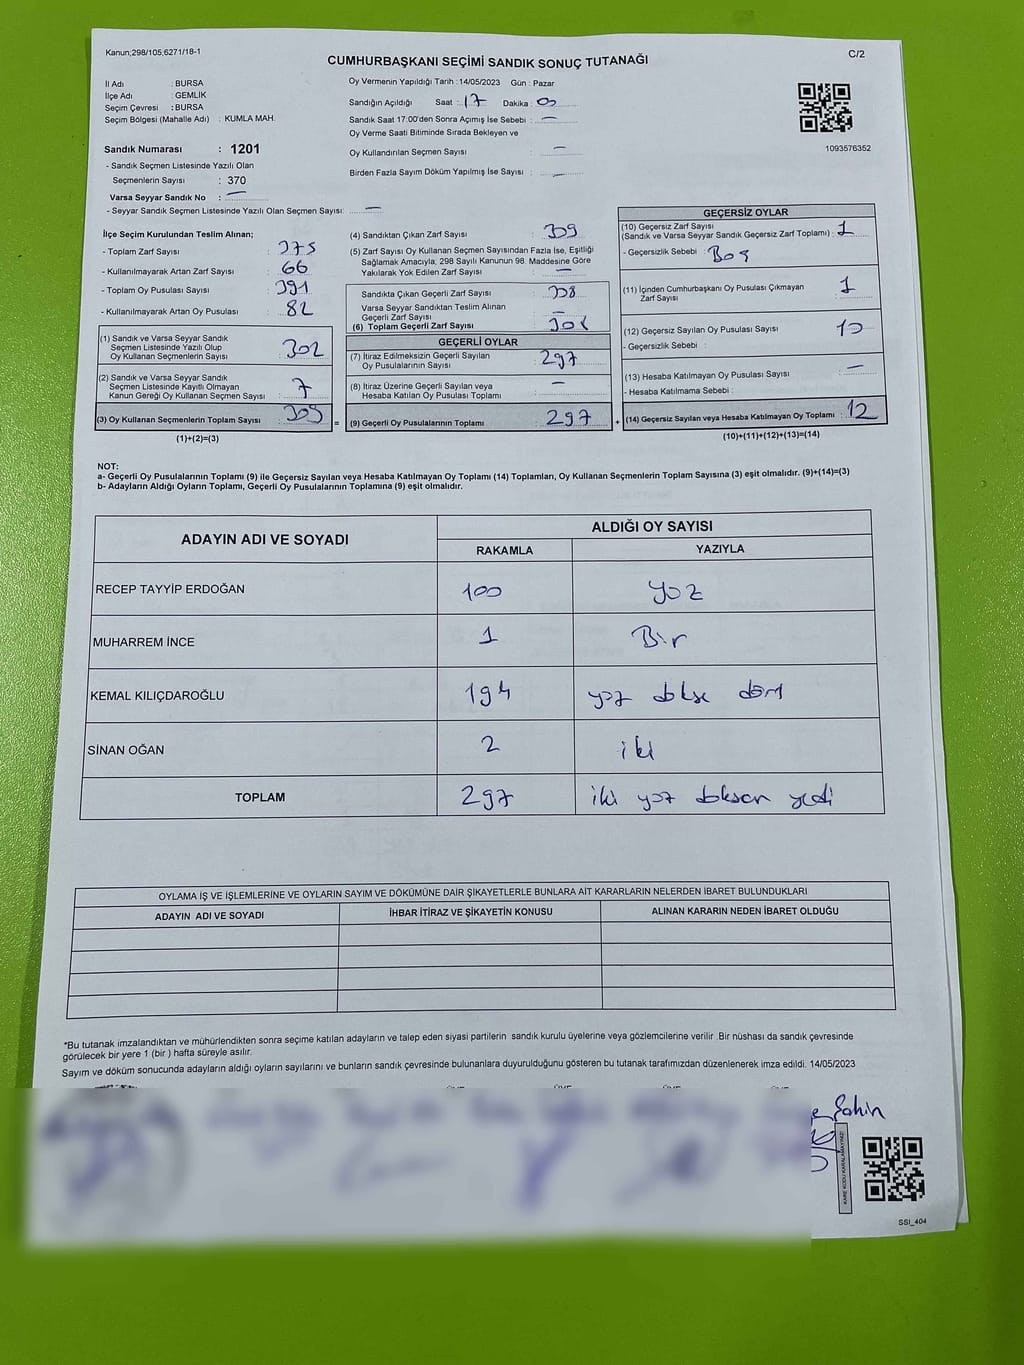 Kanun;298/105,6271/18-1
C/2
CUMHURBAŞKANI SEÇİMİ SANDIK SONUÇ TUTANAĞI
İl Adı : BURSA
İlçe Adı : GEMLİK
Seçim Çevresi : BURSA
Seçim Bölgesi (Mahalle Adı) : KUMLA MAH.
Oy Vermenin Yapıldığı Tarih : 14/05/2023 Gün : Pazar
Sandığın Açıldığı Saat : 17 Dakika : 00
Sandık Saat 17:00'den Sonra Açımış İse Sebebi : —
Oy Verme Saati Bitiminde Sırada Bekleyen ve
Oy Kullandırılan Seçmen Sayısı : —
Birden Fazla Sayım Döküm Yapılmış İse Sayısı : —
1093576352
Sandık Numarası : 1201
- Sandık Seçmen Listesinde Yazılı Olan
Seçmenlerin Sayısı : 370
Varsa Seyyar Sandık No : —
- Seyyar Sandık Seçmen Listesinde Yazılı Olan Seçmen Sayısı: —
İlçe Seçim Kurulundan Teslim Alınan;
- Toplam Zarf Sayısı : 375
- Kullanılmayarak Artan Zarf Sayısı : 66
- Toplam Oy Pusulası Sayısı : 391
- Kullanılmayarak Artan Oy Pusulası : 82
(1) Sandık ve Varsa Seyyar Sandık
Seçmen Listesinde Yazılı Olup
Oy Kullanan Seçmenlerin Sayısı : 302
(2) Sandık ve Varsa Seyyar Sandık
Seçmen Listesinde Kayıtlı Olmayan
Kanun Gereği Oy Kullanan Seçmen Sayısı : 7
(3) Oy Kullanan Seçmenlerin Toplam Sayısı : 309
(1)+(2)=(3)
(4) Sandıktan Çıkan Zarf Sayısı : 309
(5) Zarf Sayısı Oy Kullanan Seçmen Sayısından Fazla İse, Eşitliği
Sağlamak Amacıyla, 298 Sayılı Kanunun 98. Maddesine Göre
Yakılarak Yok Edilen Zarf Sayısı : —
Sandıkta Çıkan Geçerli Zarf Sayısı : 308
Varsa Seyyar Sandıktan Teslim Alınan
Geçerli Zarf Sayısı : —
(6) Toplam Geçerli Zarf Sayısı : 308
GEÇERLİ OYLAR
(7) İtiraz Edilmeksizin Geçerli Sayılan
Oy Pusulasının Sayısı : 297
(8) İtiraz Üzerine Geçerli Sayılan veya
Hesaba Katılan Oy Pusulası Toplamı : —
= (9) Geçerli Oy Pusulalarının Toplamı : 297
GEÇERSİZ OYLAR
(10) Geçersiz Zarf Sayısı
(Sandık ve Varsa Seyyar Sandık Geçersiz Zarf Toplamı) : 1
- Geçersizlik Sebebi : Boş
(11) İçinden Cumhurbaşkanı Oy Pusulası Çıkmayan
Zarf Sayısı : 1
(12) Geçersiz Sayılan Oy Pusulası Sayısı : 10
- Geçersizlik Sebebi :
(13) Hesaba Katılmayan Oy Pusulası Sayısı : —
- Hesaba Katılmama Sebebi :
+ (14) Geçersiz Sayılan veya Hesaba Katılmayan Oy Toplamı : 12
(10)+(11)+(12)+(13)=(14)
NOT:
a- Geçerli Oy Pusulalarının Toplamı (9) ile Geçersiz Sayılan veya Hesaba Katılmayan Oy Toplamı (14) Toplamları, Oy Kullanan Seçmenlerin Toplam Sayısına (3) eşit olmalıdır. (9)+(14)=(3)
b- Adayların Aldığı Oyların Toplamı, Geçerli Oy Pusulalarının Toplamına (9) eşit olmalıdır.
ADAYIN ADI VE SOYADI
ALDIĞI OY SAYISI
RAKAMLA YAZIYLA
RECEP TAYYİP ERDOĞAN 100 yüz
MUHARREM İNCE 1 Bir
KEMAL KILIÇDAROĞLU 194 yüz dört
SİNAN OĞAN 2 iki
TOPLAM 297 iki yüz doksan yedi
OYLAMA İŞ VE İŞLEMLERİNE VE OYLARIN SAYIM VE DÖKÜMÜNE DAİR ŞİKAYETLERLE BUNLARA AİT KARARLARIN NELERDEN İBARET BULUNDUKLARI
ADAYIN ADI VE SOYADI İHBAR İTİRAZ VE ŞİKAYETİN KONUSU ALINAN KARARIN NEDEN İBARET OLDUĞU
*Bu tutanak imzalandıktan ve mühürlendikten sonra seçime katılan adayların ve talep eden siyasi partilerin sandık kurulu üyelerine veya gözlemcilerine verilir .Bir nüshası da sandık çevresinde
görülecek bir yere 1 (bir ) hafta süreyle asılır.
Sayım ve döküm sonucunda adayların aldığı oyların sayılarını ve bunların sandık çevresinde bulunanlara duyurulduğunu gösteren bu tutanak tarafımızdan düzenlenerek imza edildi. 14/05/2023
Şahin
KARE KODU KARALAMAYINIZ!
SSI_404